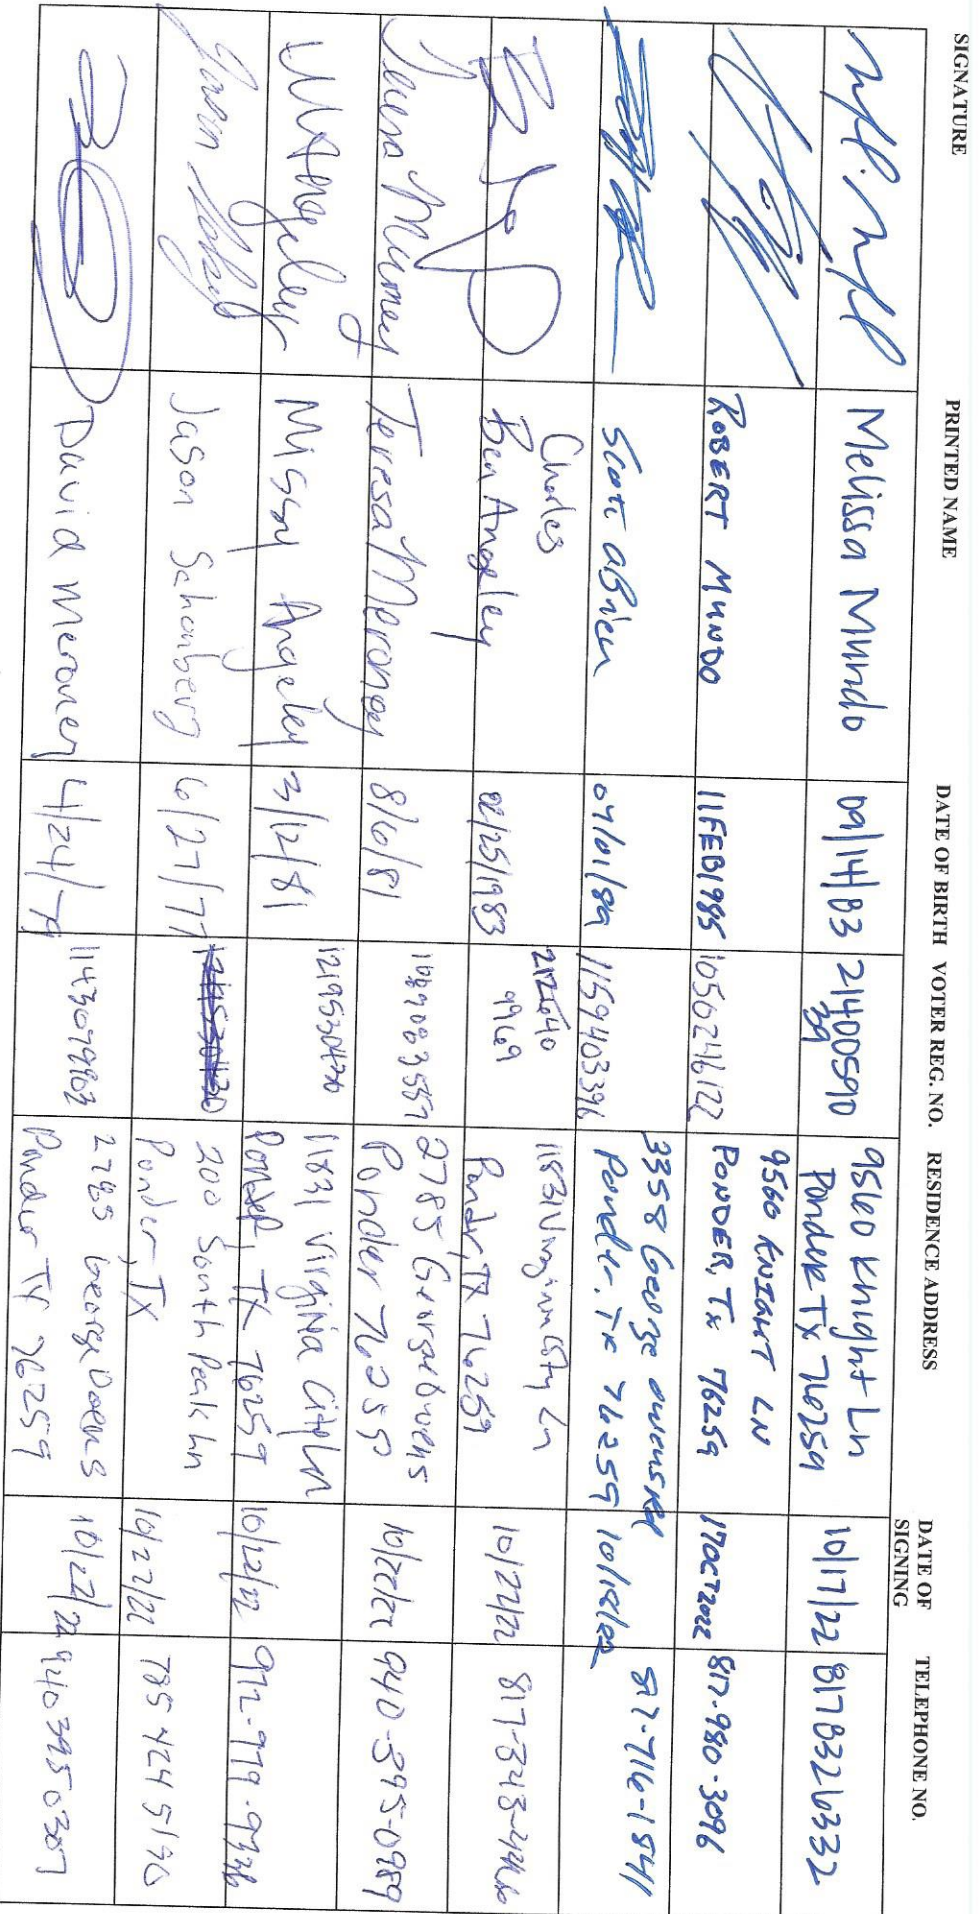 SIGNATURE PRINTED NAME DATE OF BIRTH VOTER REG. NO. RESIDENCE ADDRESS DATE OF SIGNING TELEPHONE NO.
Melissa Mundo 09/14/83 2140050910 39 9560 Knight Ln Ponder TX 76259 10/17/22 8178326332
ROBERT MUNDO 11FEB1985 1056246122 9560 KNIGHT LN PONDER, Tx 76259 17OCT2022 817-980-3096
Scott OBrien 07/01/89 1159403396 3358 George Owens Rd Ponder, Tx 76259 817-716-1541
Charles Ben Angeley 02/25/1983 9969 Ponder, TX 76259 10/22/22
Teresa Meroney Teresa Meroney 8/6/81 2785 George Owens Ponder 76259 10/22/22 940-395-0989
M Angeley Missy Angeley 3/12/81 1219530470 11831 Virginia City Ln Ponder, TX 76259 10/22/22
Jason Schonberg 6/27/77 200 South Peak Ln Ponder, TX 10/22/22 785 424 5190
David Meroney 4/24/79 2785 George Owens Ponder TX 76259 10/22/22 9403950307